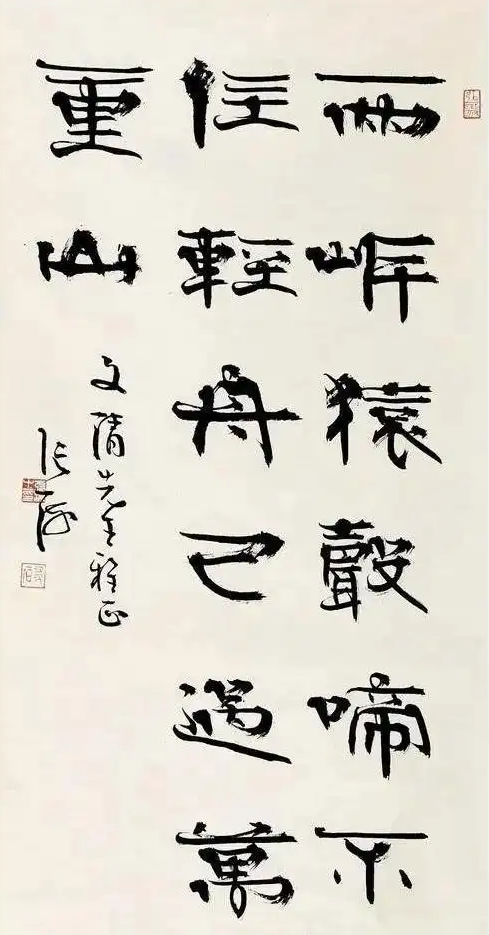 兩岸猿聲啼不
住輕舟已過萬
重山
先生雅正
张海